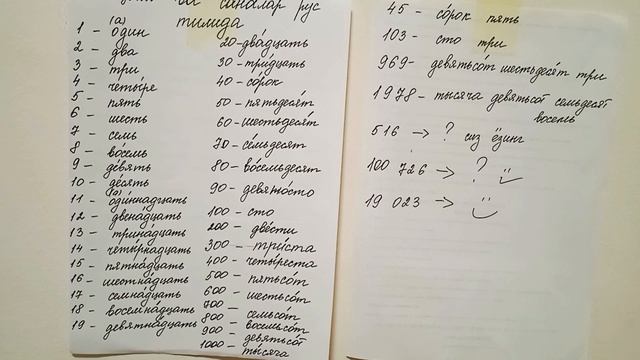 саналар рус
тилида
(а)
1 - один
2 - два
3 - три
4 - четы́ре
5 - пять
6 - шесть
7 - семь
8 - во́семь
9 - де́вять
10 - де́сять
(а)
11 - оди́ннадцать
12 - двена́дцать
13 - трина́дцать
14 - четы́рнадцать
15 - пятна́дцать
16 - шестна́дцать
17 - семна́дцать
18 - восемна́дцать
19 - девятна́дцать
20 - два́дцать
30 - три́дцать
40 - со́рок
50 - пятьдеся́т
60 - шестьдеся́т
70 - се́мьдесят
80 - во́семьдесят
90 - девяно́сто
100 - сто
200 - две́сти
300 - три́ста
400 - четы́реста
500 - пятьсо́т
600 - шестьсо́т
700 - семьсо́т
800 - восемьсо́т
900 - девятьсо́т
1000 - ты́сяча
45 - со́рок пять
103 - сто три
969 - девятьсо́т шестьдеся́т три
1978 - тысяча девятьсо́т семьдесят
восемь
516 → ? сиз ёзинг
100 726 → ?
19 023 →